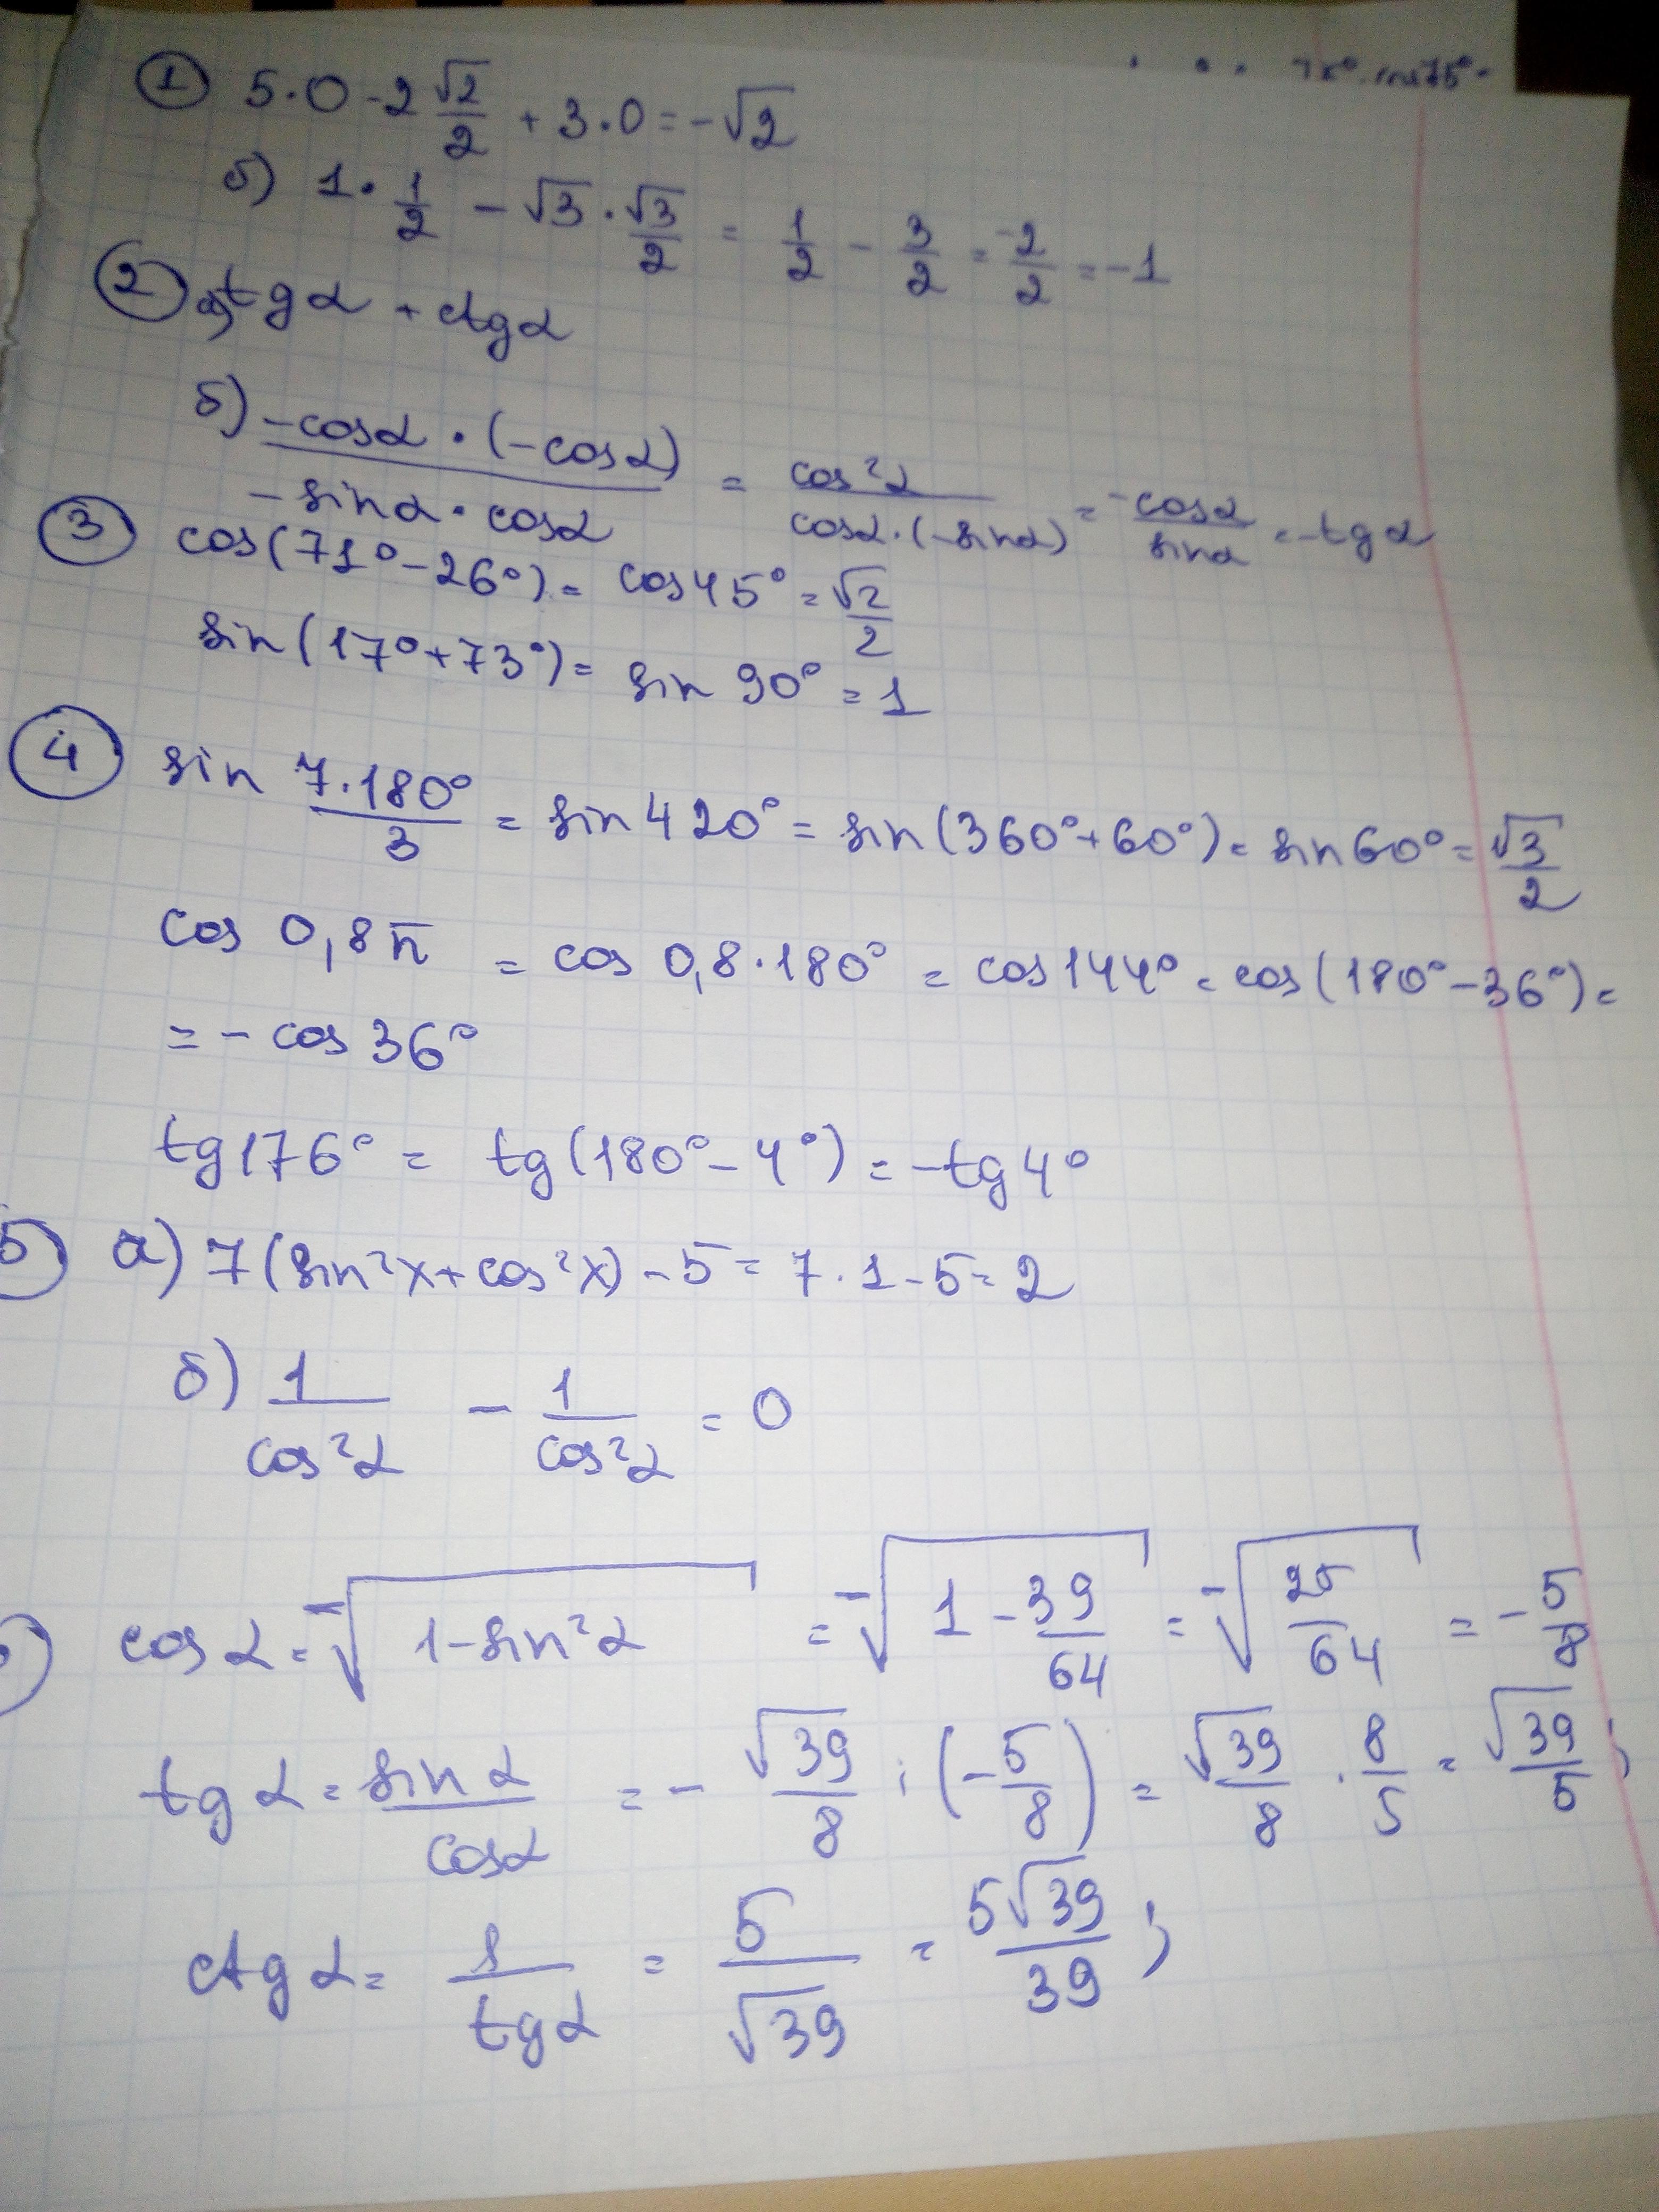 75° · cos75° -
① 5·0 - 2 √2/2 + 3·0 = -√2
б) 1· 1/2 - √3 · √3/2 = 1/2 - 3/2 = -2/2 = -1
② а) tgα + ctgα
б) -cosα · (-cosα) / -sinα · cosα = cos²α / cosα·(-sinα) = -cosα/sinα = -tgα
③ cos(71° - 26°) = cos45° = √2/2
sin(17° + 73°) = sin 90° = 1
④ sin 7·180°/3 = sin420° = sin(360° + 60°) = sin60° = √3/2
cos 0,8π = cos 0,8·180° = cos144° = cos(180° - 36°) =
= - cos 36°
tg176° = tg(180° - 4°) = -tg4°
5) а) 7(sin²x + cos²x) - 5 = 7·1 - 5 = 2
б) 1/cos²α - 1/cos²α = 0
cosα = -√(1 - sin²α) = -√(1 - 39/64) = -√(25/64) = -5/8
tgα = sinα/cosα = - √39/8 : (-5/8) = √39/8 · 8/5 = √39/5 ;
ctgα = 1/tgα = 5/√39 = 5√39/39 ;